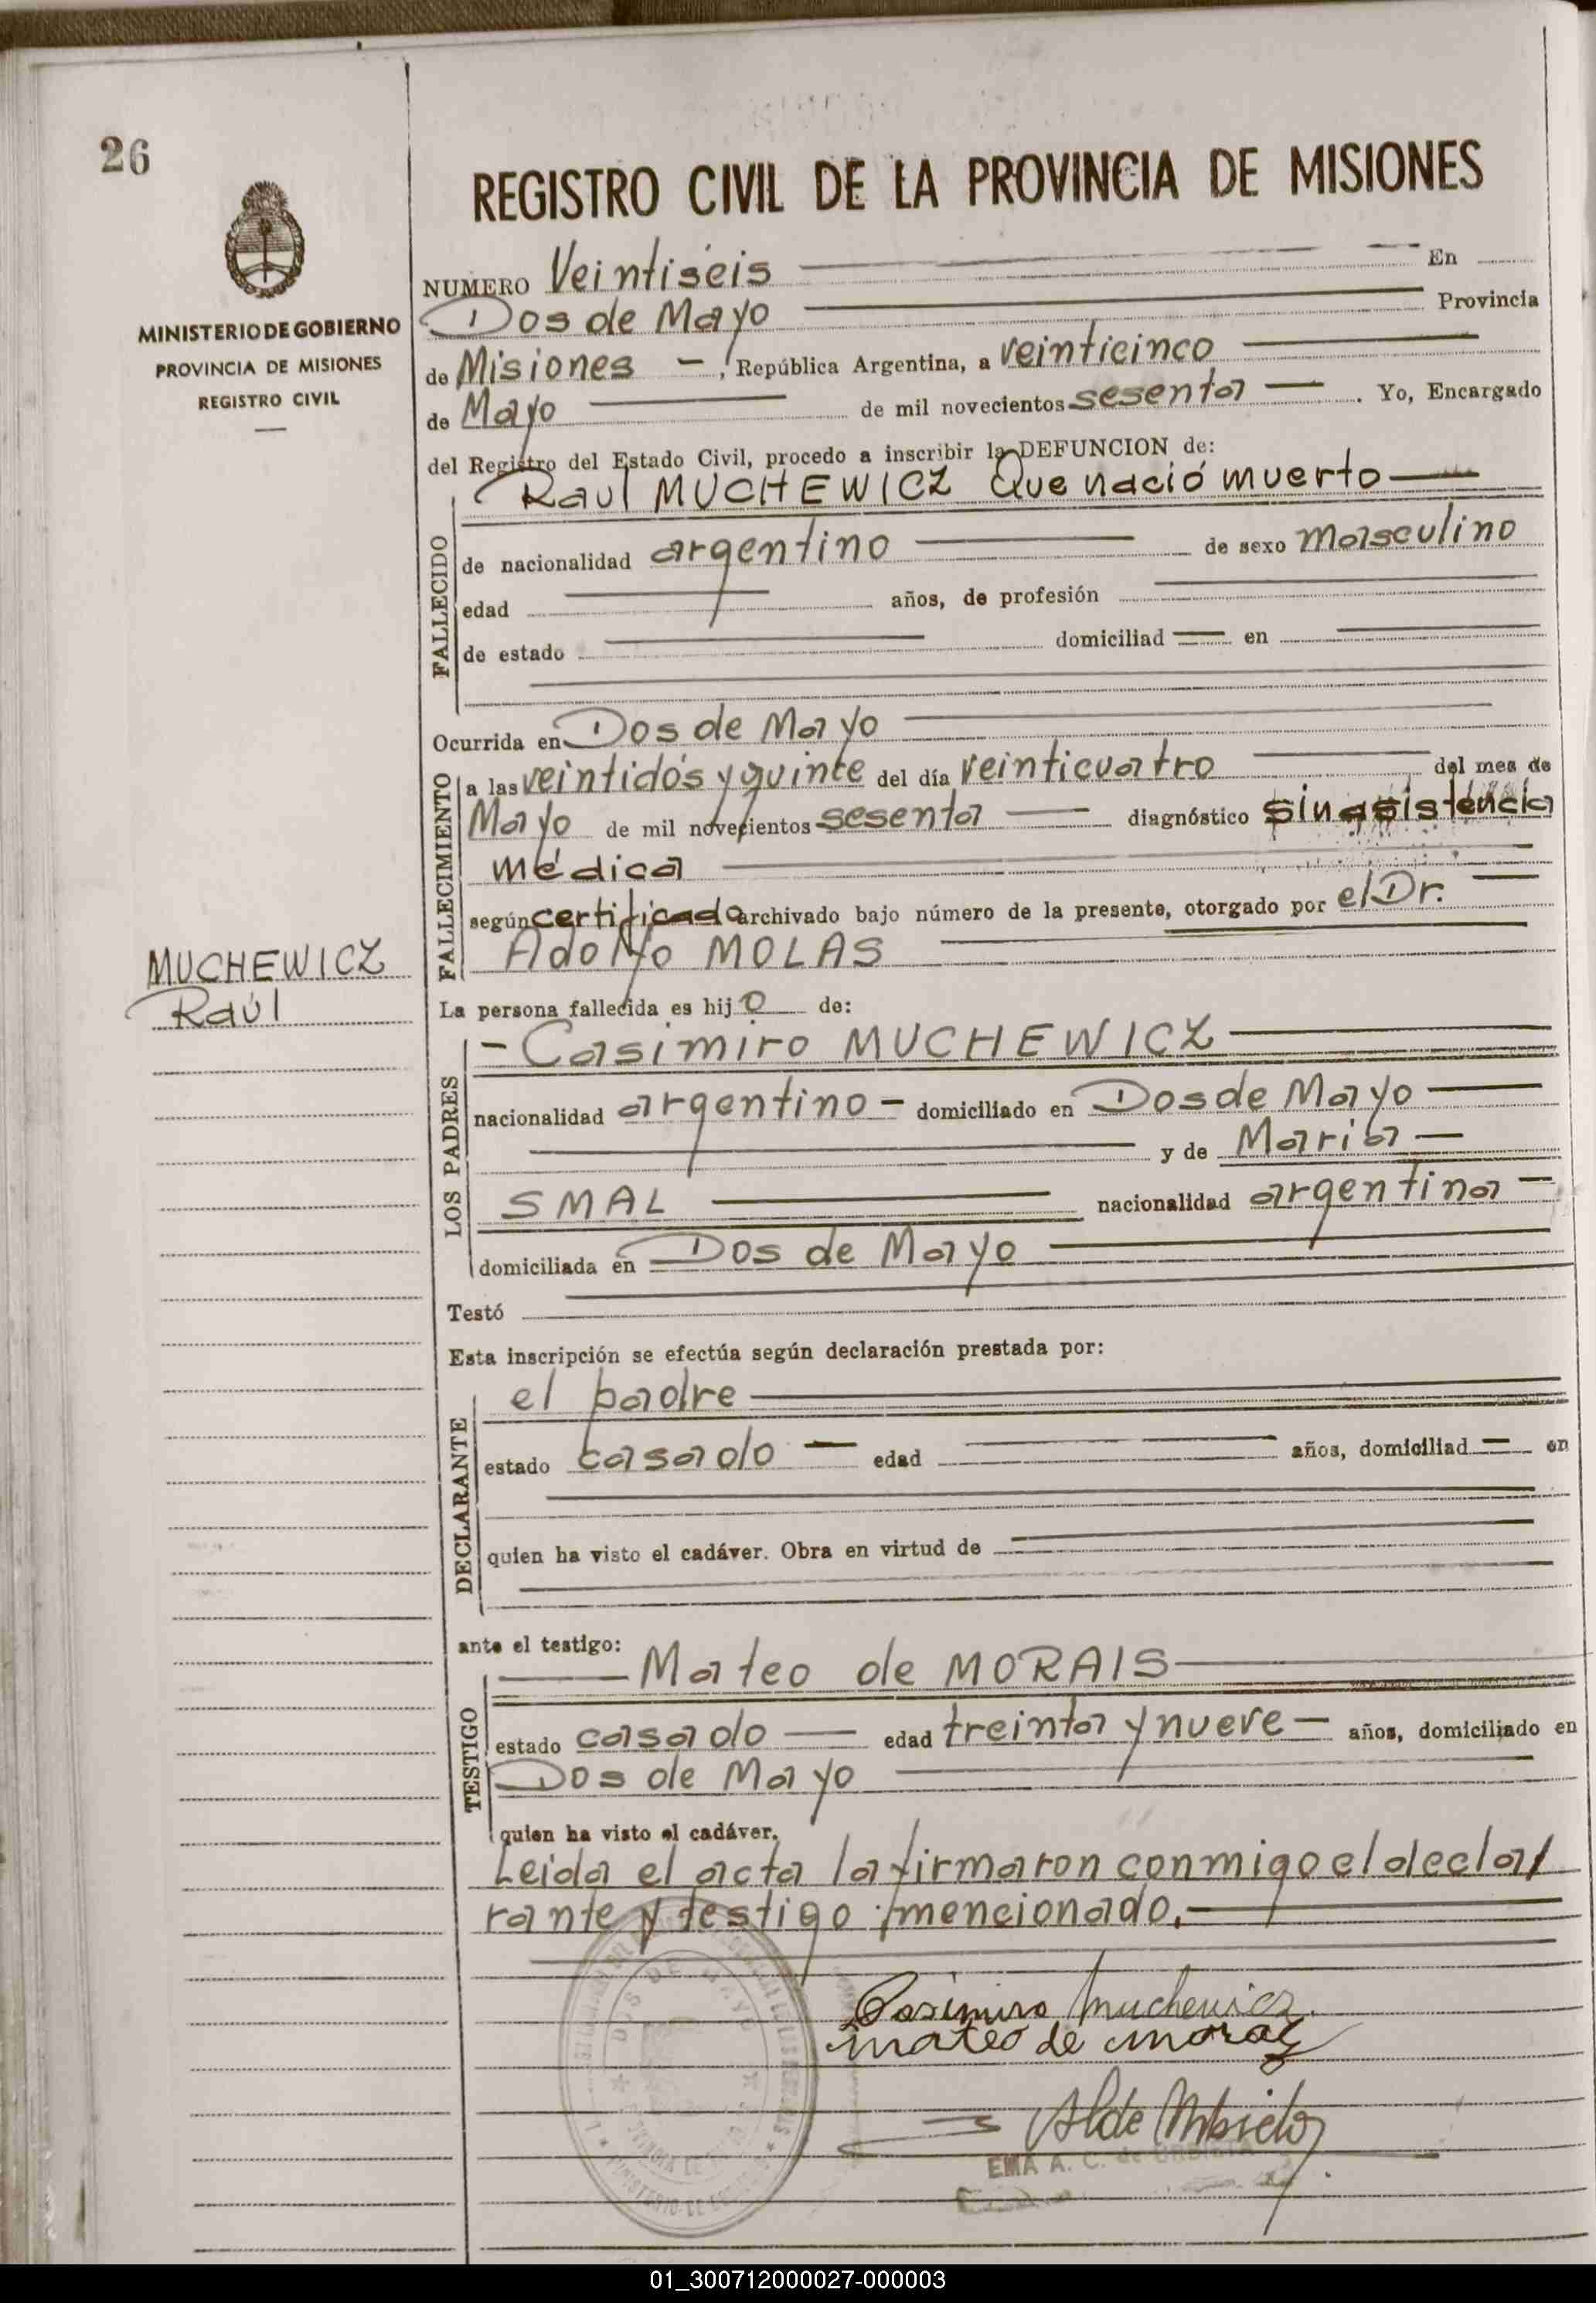 26
MINISTERIO DE GOBIERNO
PROVINCIA DE MISIONES
REGISTRO CIVIL
REGISTRO CIVIL DE LA PROVINCIA DE MISIONES
NUMERO Veintiséis En
Dos de Mayo Provincia
de Misiones —, República Argentina, a veinticinco
de Mayo de mil novecientos sesenta —. Yo, Encargado
del Registro del Estado Civil, procedo a inscribir la DEFUNCION de:
Raul MUCHEWICZ Que nació muerto
FALLECIDO
de nacionalidad argentino de sexo masculino
edad años, de profesión
de estado domiciliad en
Ocurrida en Dos de Mayo
FALLECIMIENTO
a las veintidós y quince del día veinticuatro del mes de
Mayo de mil novecientos sesenta — diagnóstico sin asistencia
médica
según certificado archivado bajo número de la presente, otorgado por el Dr.
Adolfo MOLAS
MUCHEWICZ
Raúl
La persona fallecida es hijo de:
LOS PADRES
- Casimiro MUCHEWICZ
nacionalidad argentino - domiciliado en Dos de Mayo
y de Maria
SMAL nacionalidad argentina -
domiciliada en Dos de Mayo
Testó
Esta inscripción se efectúa según declaración prestada por:
DECLARANTE
el padre
estado casado — edad años, domiciliad — en
quien ha visto el cadáver. Obra en virtud de
ante el testigo:
TESTIGO
Mateo de MORAIS
estado casado — edad treinta y nueve — años, domiciliado en
Dos de Mayo
quien ha visto el cadáver.
Leida el acta la firmaron conmigo el decla
rante y testigo mencionado.
DOS DE MAYO
Casimiro Muchewicz
mateo de moraz
EMA A. C. de
01_300712000027-000003